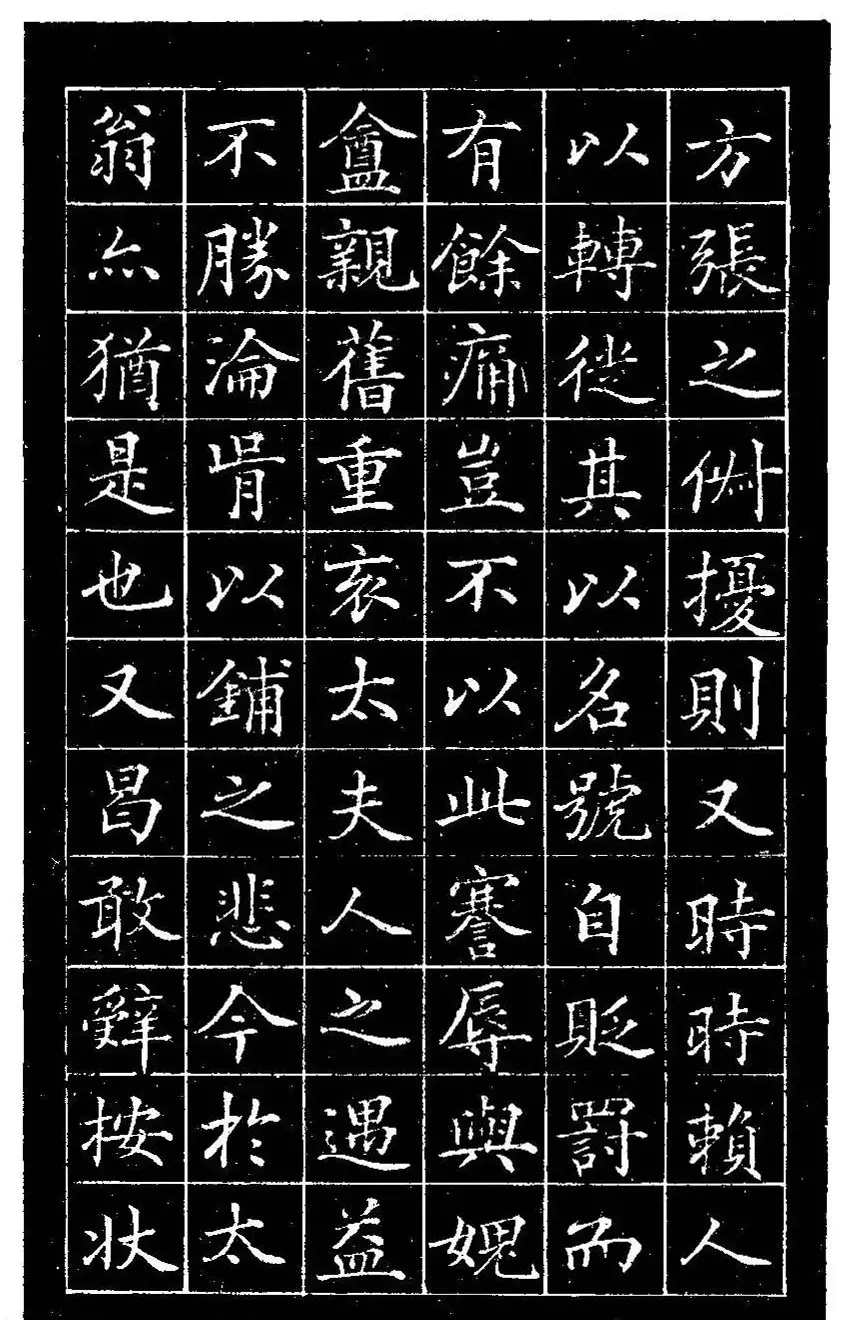 方張之擾則又時時賴人
以轉徙其以名號自貶罰而
有餘痛豈不以此謇辱與媿
盦親舊重哀太夫人之遇益
不勝淪胥以鋪之悲今於太
翁亦猶是也又曷敢辭按狀